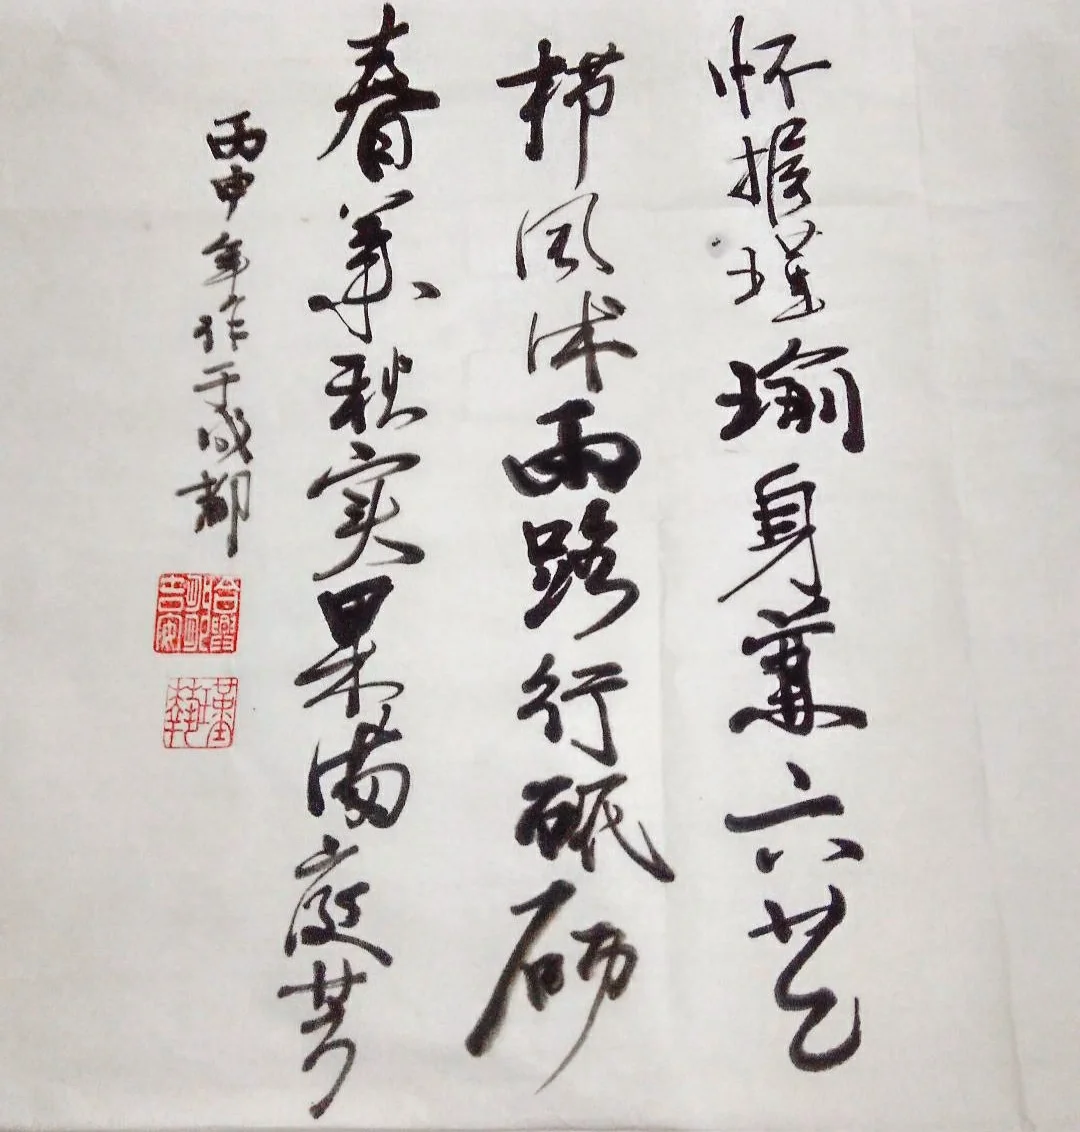 怀握瑾瑜身兼六艺
栉风沐雨路行砥砺
春华秋实果满庭芳
丙申年作于成都